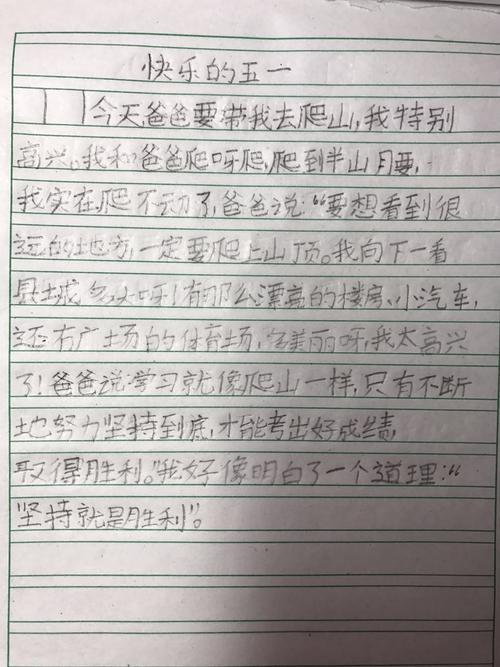 快乐的五一
今天,爸爸要带我去爬山,我特别
高兴。我和爸爸爬呀爬,爬到半山月要,
我实在爬不动了,爸爸说:“要想看到很
远的地方,一定要爬上山顶。我向下一看
县城多大呀!有那么漂亮的楼房、小汽车,
还有广场的体育场,多美丽呀,我太高兴
了!爸爸说:学习就像爬山一样,只有不断
地努力坚持到底,才能考出好成绩,
取得胜利。”我好像明白了一个道理:“
坚持就是胜利”。